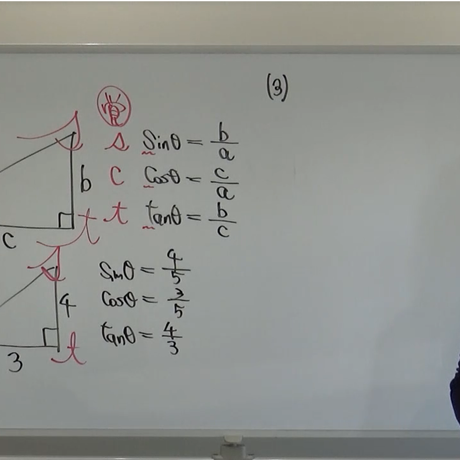 (3)
s sinθ = b/a
b c cosθ = c/a
t tanθ = b/c
c t
sinθ = 4/5
4 cosθ = 3/5
tanθ = 4/3
3 t